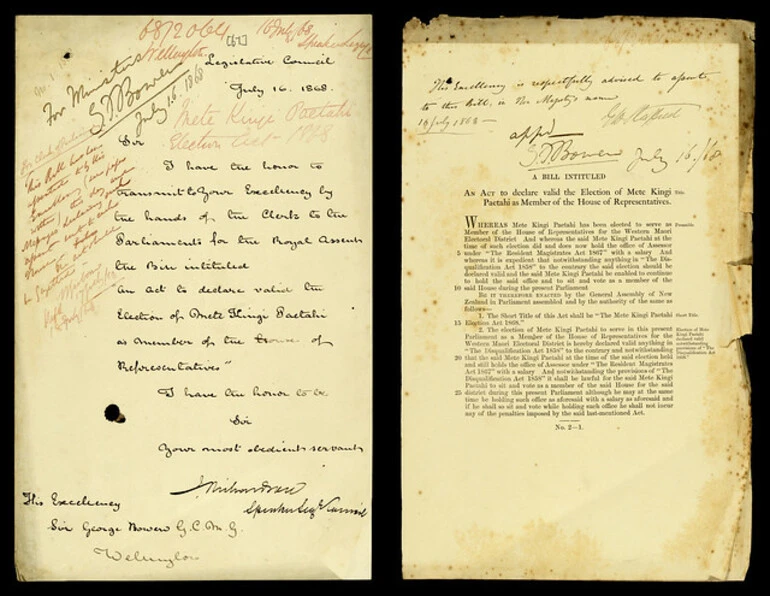 68/2064
16 July/68
Wellington
[67]
For Ministers
G.F. Bowen
July 16. 1868
Legislative Council
July 16. 1868.
Mete Kingi Paetahi
Election Act 1868
Sir
I have the honor to
transmit to Your Excellency by
the hands of the Clerk to the
Parliaments for the Royal Assent
the Bill intituled
"An Act to declare valid the
Election of Mete Kingi Paetahi
as Member of the House of
Representatives"
I have the honor to be
Sir
Your most obedient servant
J Richardson
Speaker Leg Council
His Excellency
Sir George Bowen G.C.M.G.
Wellington
This Bill has been
His Excellency is respectfully advised to assent
to this Bill, in Her Majesty's name
16 July 1868 —
appd
G.F. Bowen July 16./68
A BILL INTITULED
AN ACT to declare valid the Election of Mete Kingi Title.
Paetahi as Member of the House of Representatives.
WHEREAS Mete Kingi Paetahi has been elected to serve as Preamble.
Member of the House of Representatives for the Western Maori
Electoral District And whereas the said Mete Kingi Paetahi at the
time of such election did and does now hold the office of Assessor
5 under "The Resident Magistrates Act 1867" with a salary And
whereas it is expedient that notwithstanding anything in "The Dis-
qualification Act 1858" to the contrary the said election should be
declared valid and the said Mete Kingi Paetahi be enabled to continue
to hold the said office and to sit and vote as a member of the
10 said House during the present Parliament
BE IT THEREFORE ENACTED by the General Assembly of New
Zealand in Parliament assembled and by the authority of the same as
follows—
1. The Short Title of this Act shall be "The Mete Kingi Paetahi Short Title.
15 Election Act 1868."
2. The election of Mete Kingi Paetahi to serve in this present
Parliament as a Member of the House of Representatives for the
Western Maori Electoral District is hereby declared valid anything in
"The Disqualification Act 1858" to the contrary notwithstanding
20 that the said Mete Kingi Paetahi at the time of the said election held
and still holds the office of Assessor under "The Resident Magistrates
Act 1867" with a salary And notwithstanding the provisions of "The
Disqualification Act 1858" it shall be lawful for the said Mete Kingi
Paetahi to sit and vote as a member of the said House for the said
25 district during this present Parliament although he may at the same
time be holding such office as aforesaid with a salary as aforesaid and
if he shall so sit and vote while holding such office he shall not incur
any of the penalties imposed by the said last-mentioned Act.
Election of Mete
Kingi Paetahi
declared valid
notwithstanding
provisions of "The
Disqualification Act
1858."
No. 2—1.